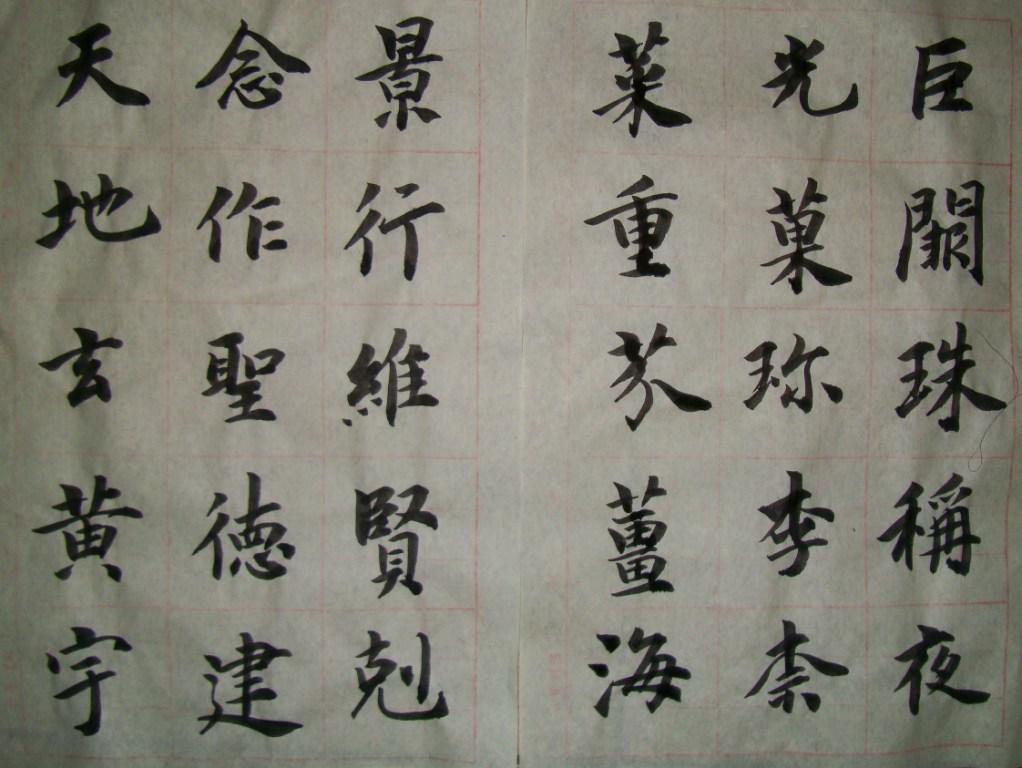 巨闕珠稱夜
光菓珎李柰
菜重芥薑海
景行維賢剋
念作聖徳建
天地玄黄宇